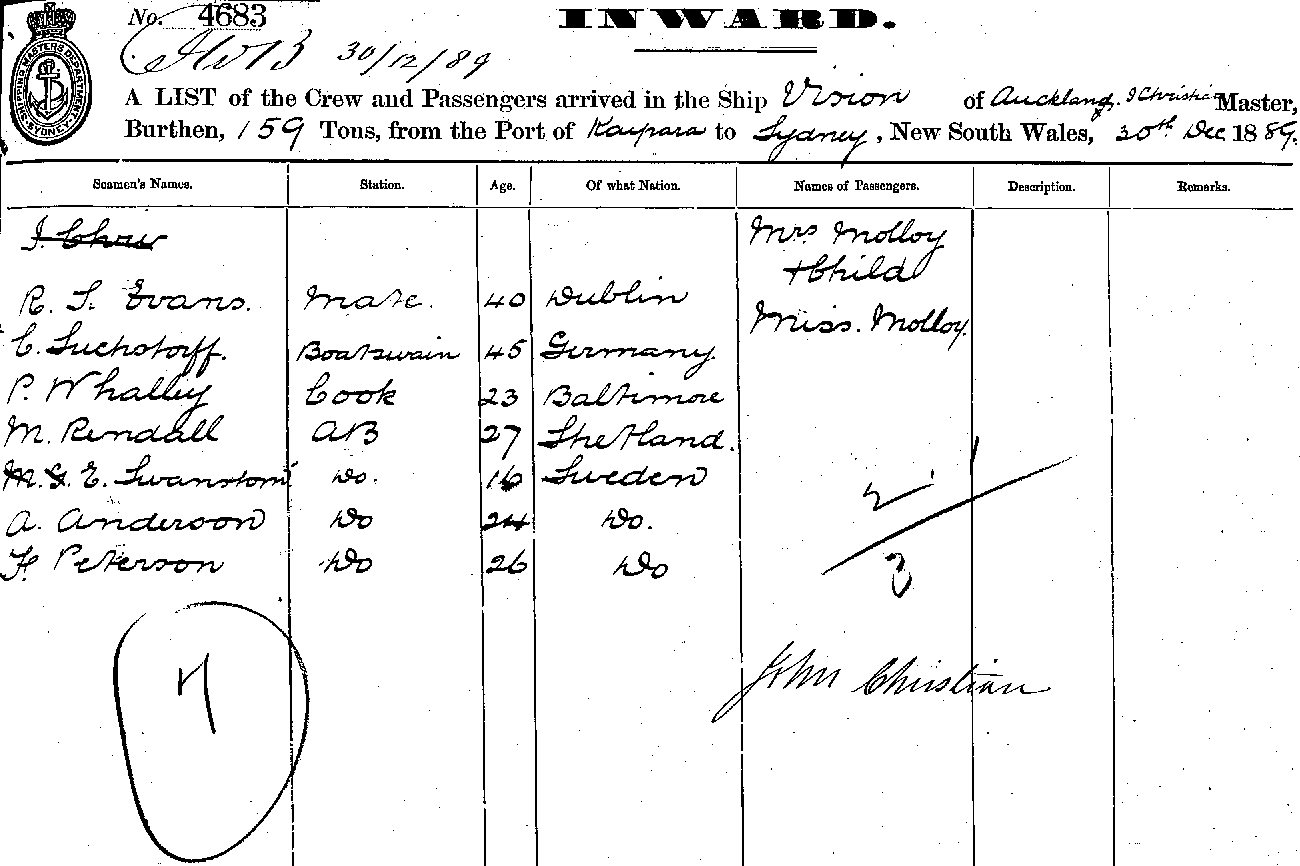 No. 4683
INWARD.
SHIPPING MASTERS DEPARTMENT SYDNEY
30/12/89
A LIST of the Crew and Passengers arrived in the Ship Vision of Auckland, J Christian Master,
Burthen, 159 Tons, from the Port of Kaipara to Sydney, New South Wales, 30th Dec 1889.
Seamen's Names. Station. Age. Of what Nation. Names of Passengers. Description. Remarks.
Mrs Molloy
+ Child
R. S. Evans. Mate. 40 Dublin
Miss. Molloy.
C. Suchstorff. Boatswain 45 Germany
P. Whalley Cook 23 Baltimore
M. Rendall AB 27 Shetland.
E. Swanstom Do. 16 Sweden
A. Anderson Do 24 Do.
F. Peterson Do 26 Do
2 1
3
7
John Christian